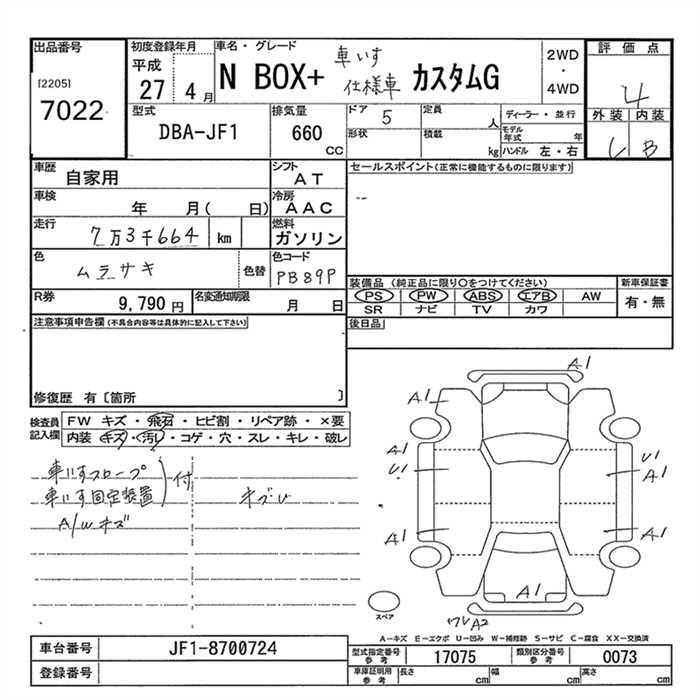 出品番号
[2205]
7022
初度登録年月
平成
27 4月
車名・グレード
N BOX+ 車いす仕様車 カスタムG
2WD
・
4WD
評価点
4
外装 内装
C B
型式
DBA-JF1
排気量
660
CC
ドア 5
形状
定員 人
積載 kg
ディーラー・並行
モデル年式 年
ハンドル 左・右
車歴
自家用
シフト
AT
車検
年 月( 日)
冷房
AAC
走行
7万3千664 km
燃料
ガソリン
色
ムラサキ
色替
色コード
PB89P
R券
9,790 円
名変通知期限
月 日
セールスポイント(正常に機能するものに限ります)
装備品 (純正品に限り〇をつけてください)
PS PW ABS エアB AW
SR ナビ TV カワ
新車保証書
有・無
後日品
注意事項申告欄(不具合内容等は具体的に記入して下さい)
修復歴 有〔箇所 〕
検査員記入欄
FW キズ・飛石・ヒビ割・リペア跡・×要
内装 キズ・汚レ・コゲ・穴・スレ・キレ・破レ
車いすスロープ
車いす固定装置
付
A/W キズ
キズU
A1
A1
A1
U1
U1
A1
A1
A1
A1
ワレ A2
スペア
A-キズ E-エクボ U-凹み W-補修跡 S-サビ C-腐食 XX-交換済
車台番号
JF1-8700724
登録番号
型式指定番号
参考
17075
類別区分番号
参考
0073
車庫証明用
参考
長さ cm
幅 cm
高さ cm